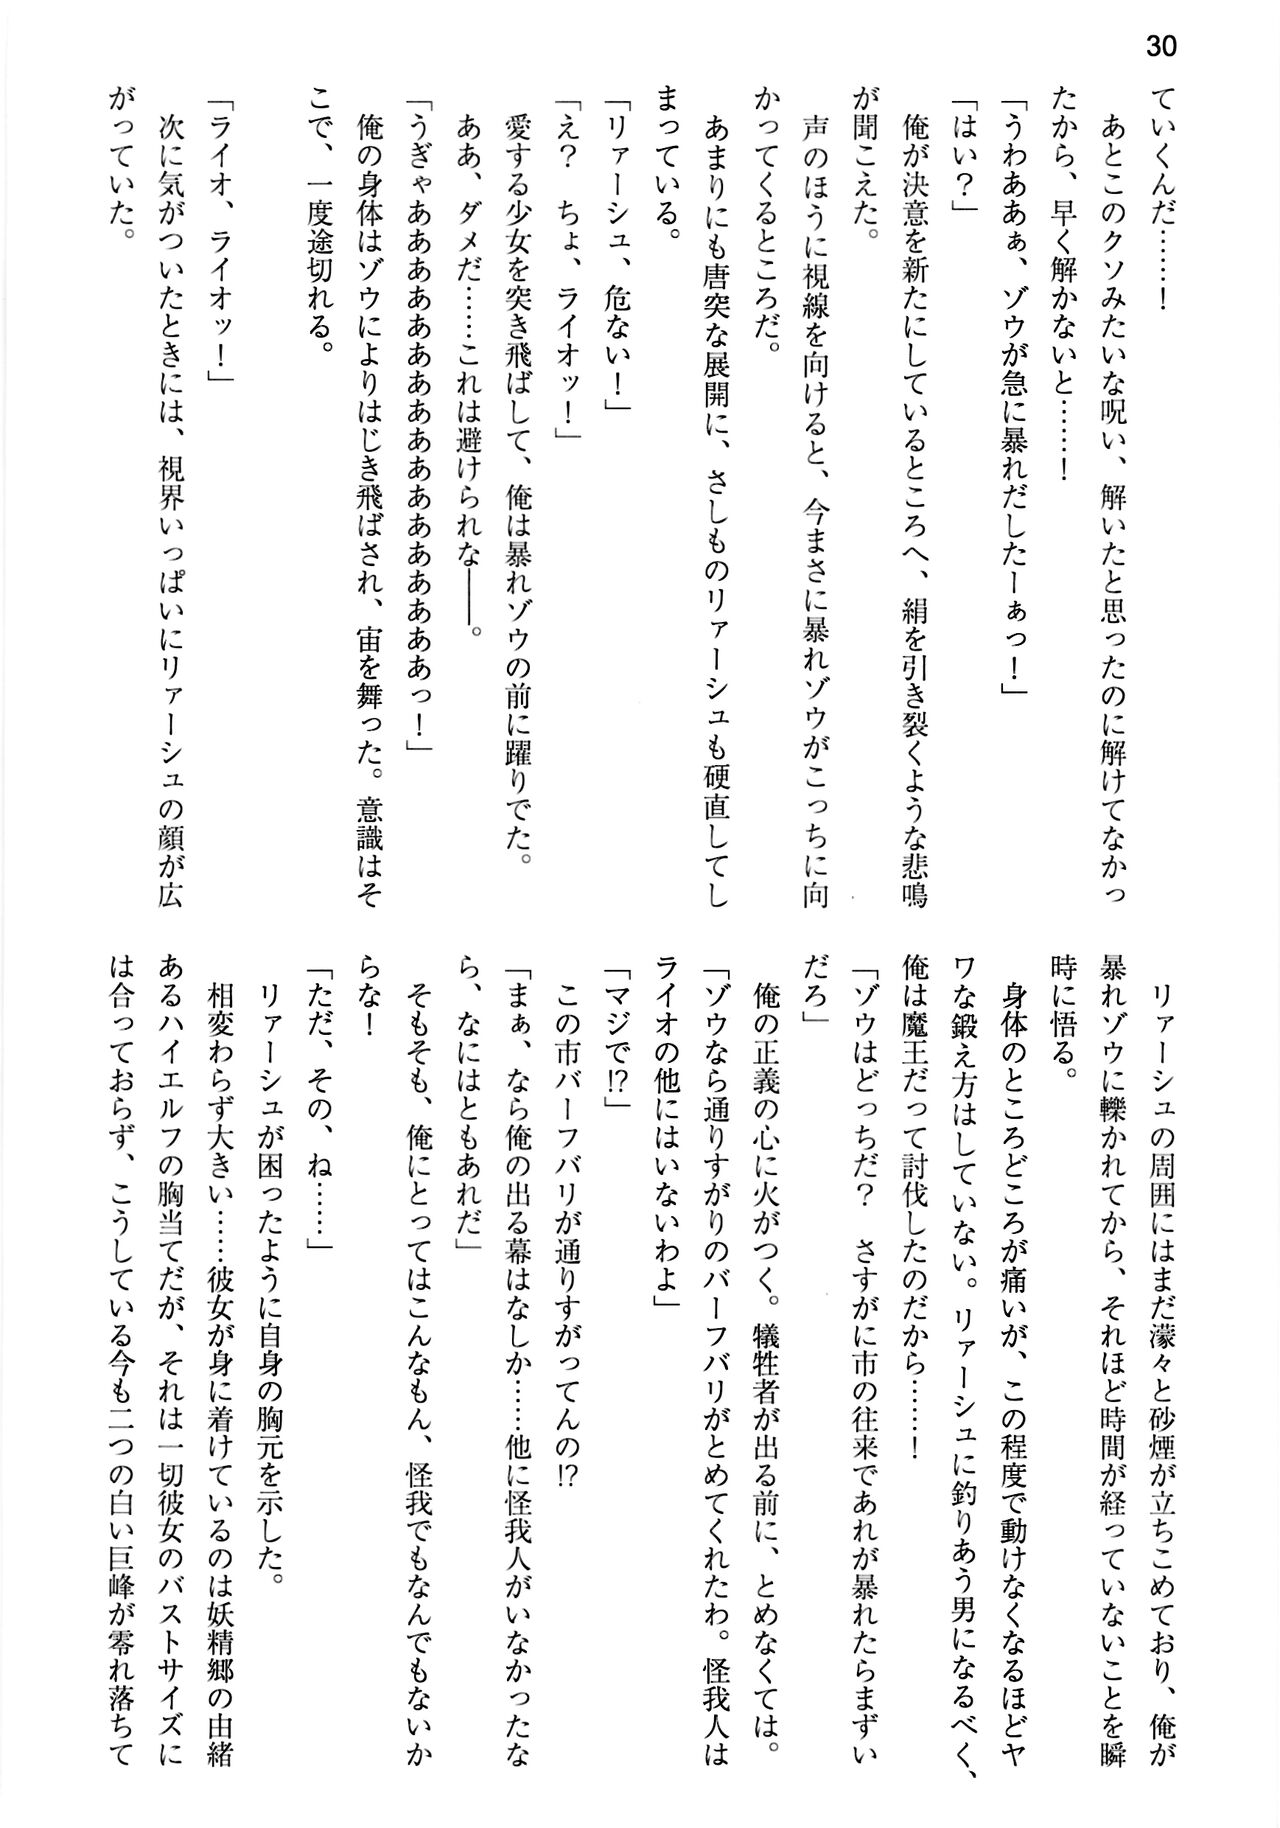 30
ていくんだ……！
　あとこのクソみたいな呪い、解いたと思ったのに解けてなかっ
たから、早く解かないと……！
「うわあぁぁ、ゾウが急に暴れだしたーぁっ！」
「はい？」
　俺が決意を新たにしているところへ、絹を引き裂くような悲鳴
が聞こえた。
　声のほうに視線を向けると、今まさに暴れゾウがこっちに向
かってくるところだ。
　あまりにも唐突な展開に、さしものリァーシュも硬直してし
まっている。
「リァーシュ、危ない！」
「え？　ちょ、ライオッ！」
　愛する少女を突き飛ばして、俺は暴れゾウの前に躍りでた。
　ああ、ダメだ……これは避けられな――。
「うぎゃあああああああああああああああああっ！」
　俺の身体はゾウによりはじき飛ばされ、宙を舞った。意識はそ
こで、一度途切れる。
「ライオ、ライオッ！」
　次に気がついたときには、視界いっぱいにリァーシュの顔が広
がっていた。
　リァーシュの周囲にはまだ濛々と砂煙が立ちこめており、俺が
暴れゾウに轢かれてから、それほど時間が経っていないことを瞬
時に悟る。
　身体のところどころが痛いが、この程度で動けなくなるほどヤ
ワな鍛え方はしていない。リァーシュに釣りあう男になるべく、
俺は魔王だって討伐したのだから……！
「ゾウはどっちだ？　さすがに市の往来であれが暴れたらまずい
だろ」
　俺の正義の心に火がつく。犠牲者が出る前に、とめなくては。
「ゾウなら通りすがりのバーフバリがとめてくれたわ。怪我人は
ライオの他にはいないわよ」
「マジで!?」
　この市バーフバリが通りすがってんの!?
「まぁ、なら俺の出る幕はなしか……他に怪我人がいなかったな
ら、なにはともあれだ」
　そもそも、俺にとってはこんなもん、怪我でもなんでもないか
らな！
「ただ、その、ね……」
　リァーシュが困ったように自身の胸元を示した。
　相変わらず大きい……彼女が身に着けているのは妖精郷の由緒
あるハイエルフの胸当てだが、それは一切彼女のバストサイズに
は合っておらず、こうしている今も二つの白い巨峰が零れ落ちて